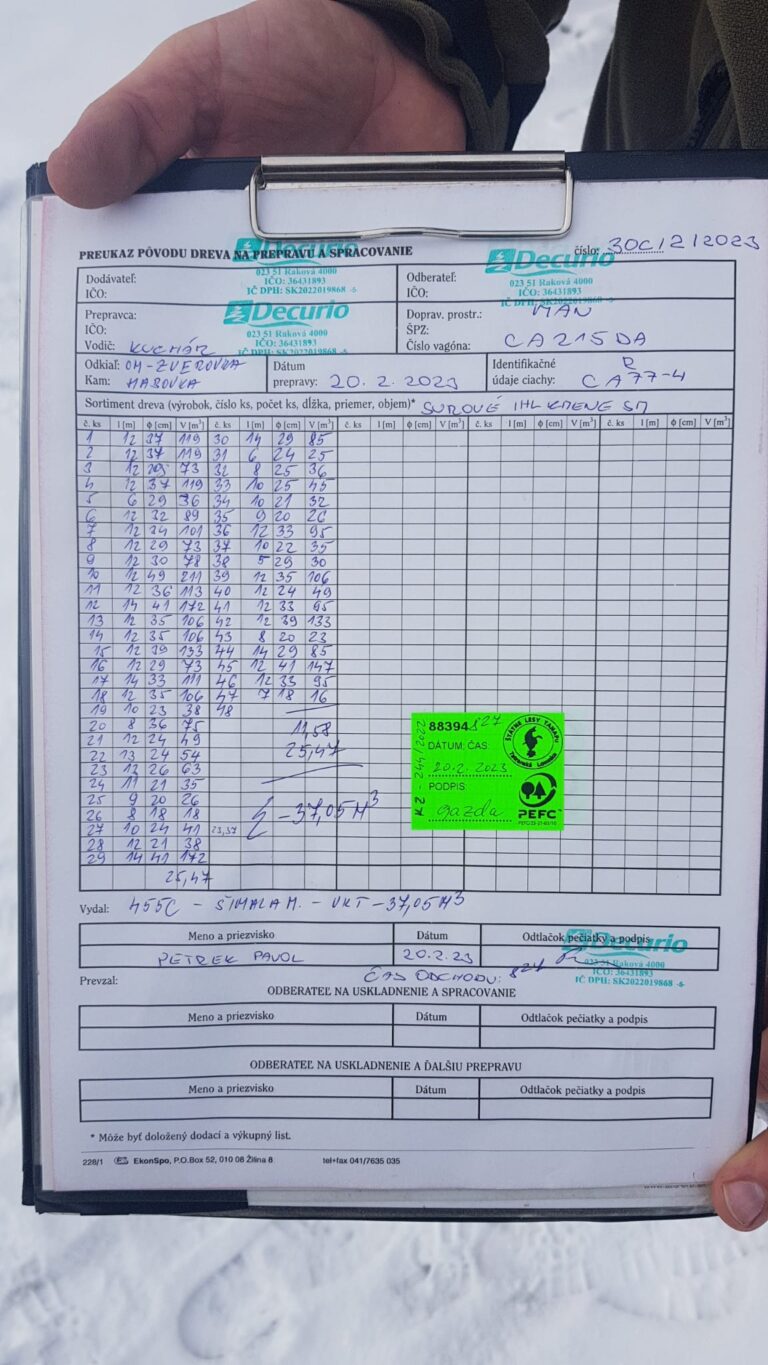 PREUKAZ PÔVODU DREVA NA PREPRAVU A SPRACOVANIE
číslo: 30C/2/2023
Decurio
023 51 Raková 4000
IČO: 36431893
IČ DPH: SK2022019868 -6
Decurio
023 51 Raková 4000
IČO: 36431893
IČ DPH: SK2022019868 -6
Dodávateľ:
IČO:
Odberateľ:
IČO:
Decurio
023 51 Raková 4000
IČO: 36431893
IČ DPH: SK2022019868 -6
Prepravca:
IČO:
Vodič: KUCHÁR
Doprav. prostr.: MAN
ŠPZ:
Číslo vagóna: CA215DA
Odkiaľ: OM-ZVEROVKA
Kam: HABOVKA
Dátum
prepravy: 20. 2. 2023
Identifikačné
údaje ciachy: CA77-4
Sortiment dreva (výrobok, číslo ks, počet ks, dĺžka, priemer, objem)* SUROVÉ IHL KMENE SM
č. ks l [m] ϕ [cm] V [m³] č. ks l [m] ϕ [cm] V [m³] č. ks l [m] ϕ [cm] V [m³] č. ks l [m] ϕ [cm] V [m³]
1 12 37 119 30 14 29 85
2 12 37 119 31 6 24 25
3 12 29 73 32 8 25 36
4 12 37 119 33 10 25 45
5 6 29 36 34 10 21 32
6 12 32 89 35 9 20 26
7 12 34 101 36 12 33 95
8 12 29 73 37 10 22 35
9 12 30 78 38 5 29 30
10 12 49 211 39 12 35 106
11 12 36 113 40 12 24 49
12 14 41 172 41 12 33 95
13 12 35 106 42 12 39 133
14 12 35 106 43 8 20 23
15 12 39 133 44 14 29 85
16 12 29 73 45 12 41 147
17 14 33 111 46 12 33 95
18 12 35 106 47 7 18 16
19 10 23 38 48
20 8 36 75 11,58
21 12 24 49 25,47
22 13 24 54
23 12 26 63
24 11 21 35
25 9 20 26
26 8 18 18 Σ - 37,05 M³
27 10 24 41 23,37
28 12 21 38
29 14 41 172
25,47
88394 827
DÁTUM: ČAS
20.2. 2023
PODPIS:
gazda
KZ - 244/2022
ŠTÁTNE LESY TANAPU
Tatranská Lomnica
PEFC
Vydal: 455C - ŠIMALA M. - VKT - 37,05 M³
Meno a priezvisko Dátum Odtlačok pečiatky a podpis
PETREK PAVOL 20.2.23
Decurio
023 51 Raková 4000
IČO: 36431893
IČ DPH: SK2022019868 -6
Prevzal: ČAS ODCHODU: 824
ODBERATEĽ NA USKLADNENIE A SPRACOVANIE
Meno a priezvisko Dátum Odtlačok pečiatky a podpis
ODBERATEĽ NA USKLADNENIE A ĎALŠIU PREPRAVU
Meno a priezvisko Dátum Odtlačok pečiatky a podpis
* Môže byť doložený dodací a výkupný list.
228/1 EkonSpo, P.O.Box 52, 010 08 Žilina 8 tel+fax 041/7635 035